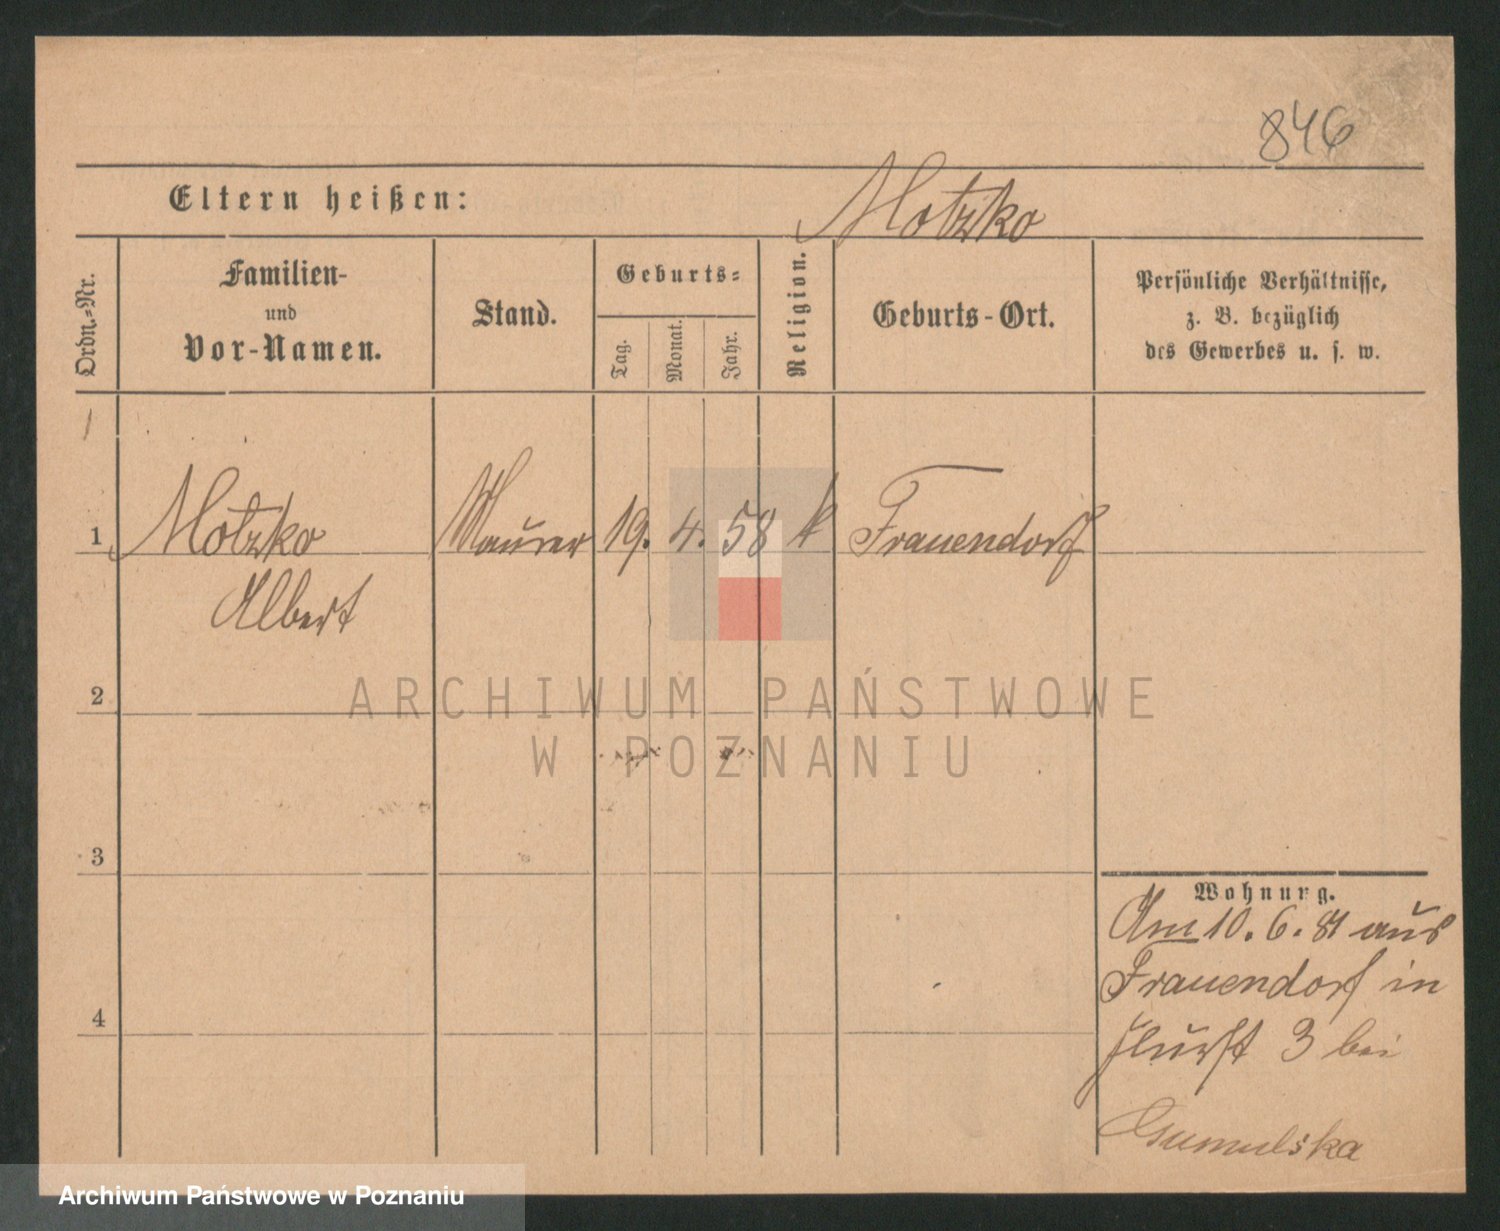 846
Eltern heißen:
Motzko
Ordn.-Nr.
Familien-
und
Vor-Namen.
Stand.
Geburts-
Tag.
Monat.
Jahr.
Religion.
Geburts-Ort.
Persönliche Verhältnisse,
z. B. bezüglich
des Gewerbes u. s. w.
1 Motzko Maurer 19. 4. 58 k Frauendorf
Albert
2
ARCHIWUM PAŃSTWOWE
W POZNANIU
3
Wohnung.
Am 10. 6. 81 aus
Frauendorf in
3 bei
4
Gumulska
Archiwum Państwowe w Poznaniu